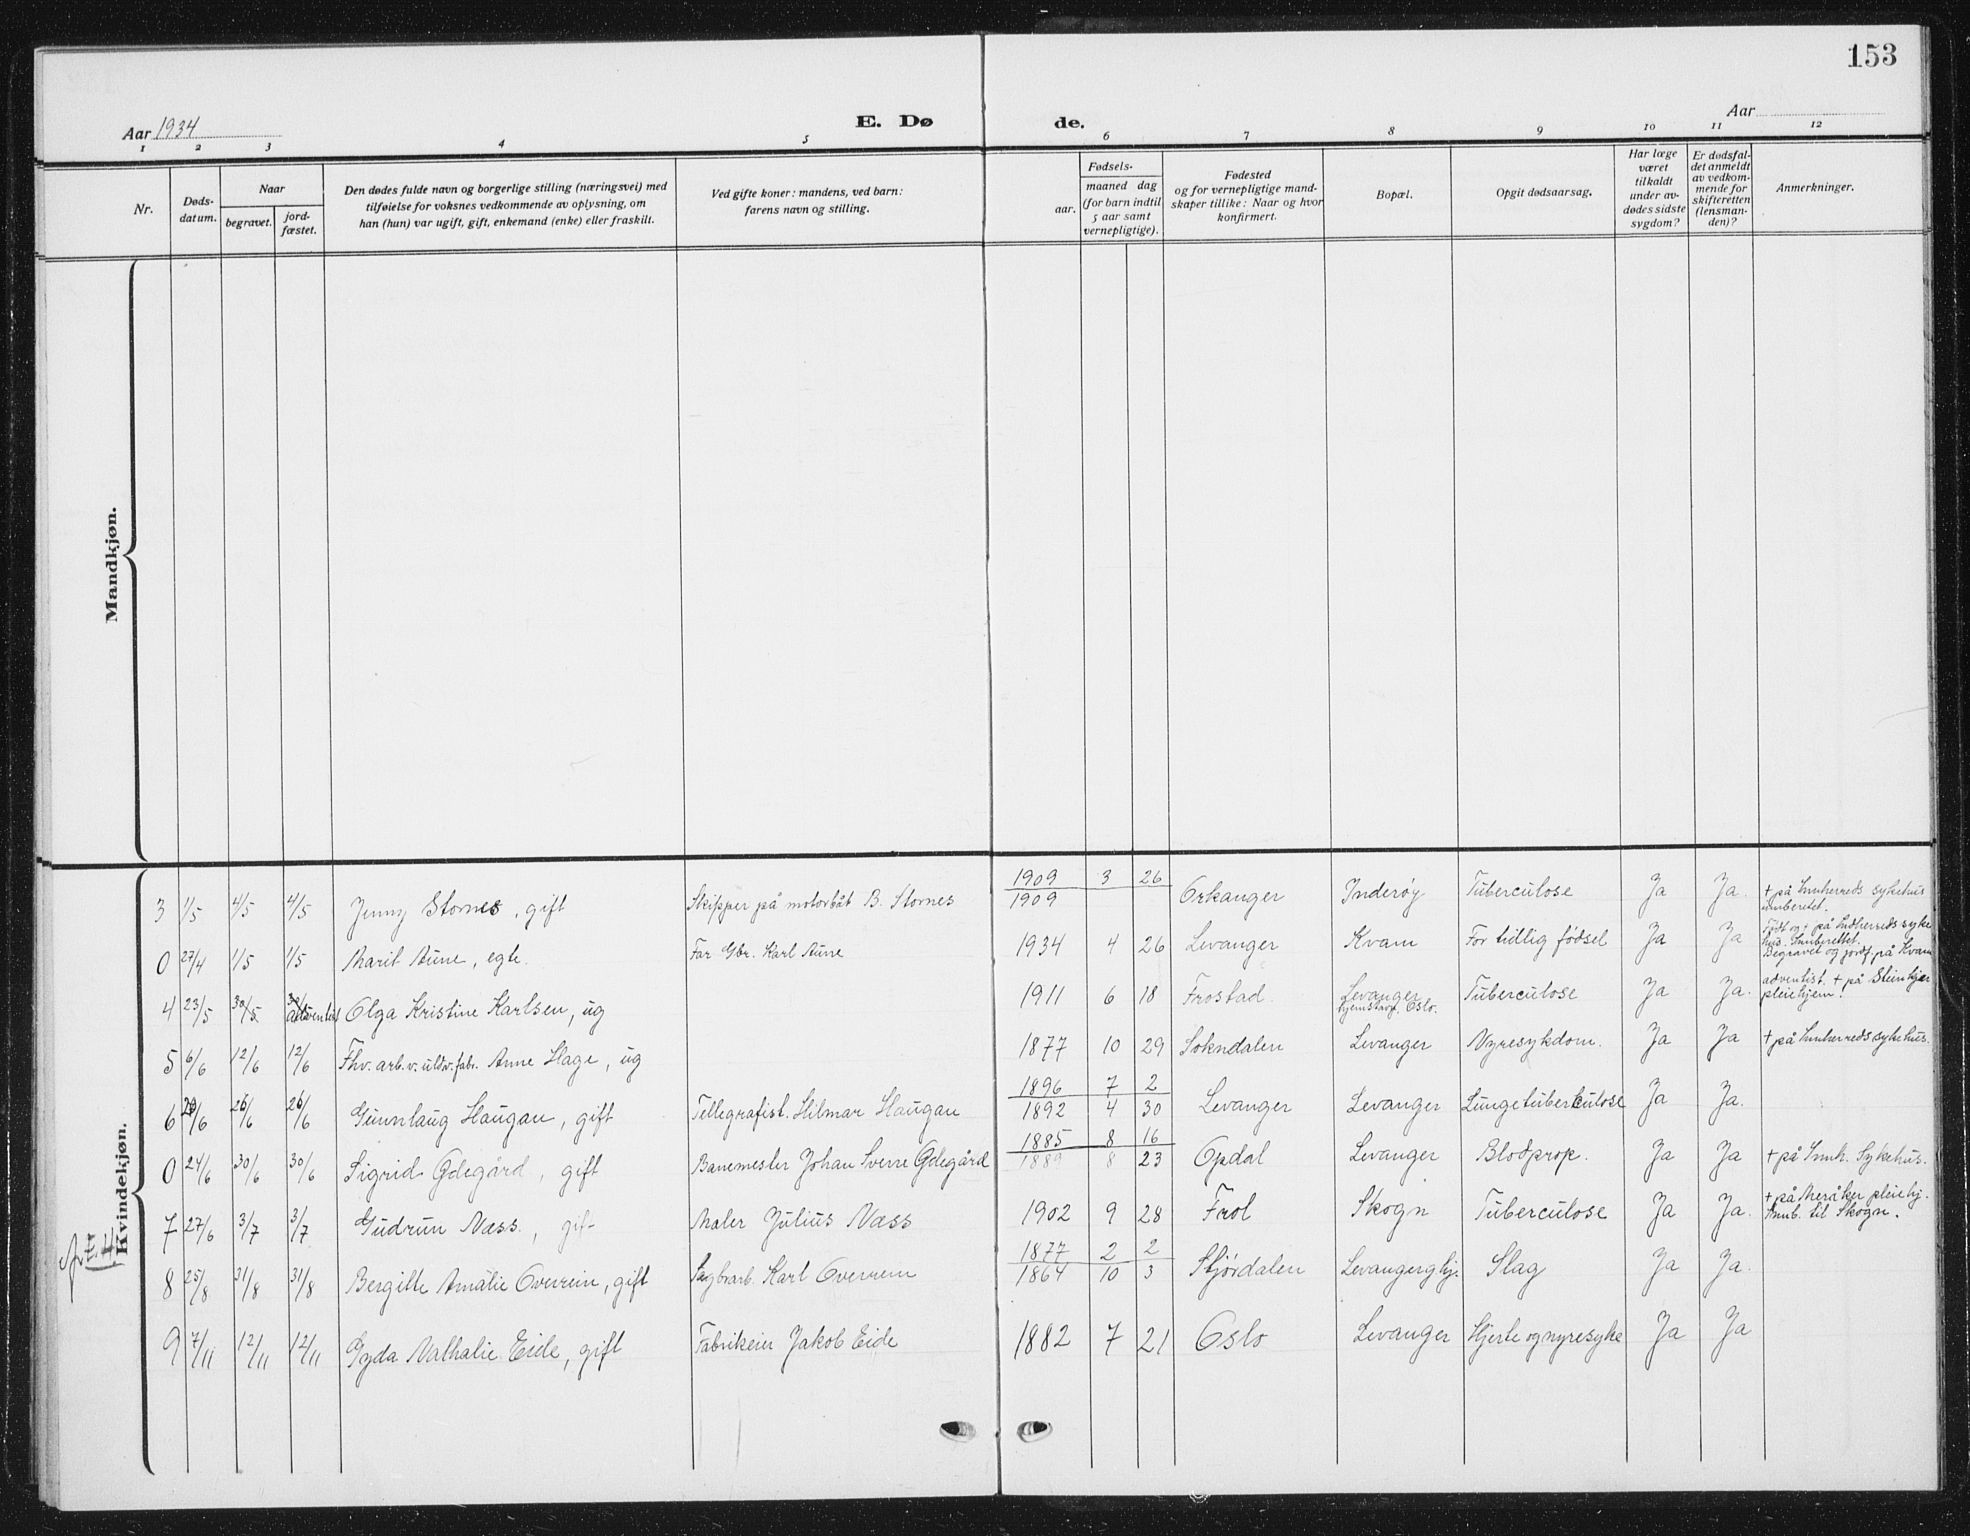 153
Aar 1934
E. Dø
de.
Aar
1 2 3 4 5 6 7 8 9 10 11 12
Nr.
Døds-
datum.
Naar
begravet.
jord-
fæstet.
Den dødes fulde navn og borgerlige stilling (næringsvei) med
tilføielse for voksnes vedkommende av oplysning, om
han (hun) var ugift, gift, enkemand (enke) eller fraskilt.
Ved gifte koner: mandens, ved barn:
farens navn og stilling.
Fødsels-
aar.
maaned dag
(for barn indtil
5 aar samt
vernepligtige).
Fødested
og for vernepligtige mand-
skaper tillike: Naar og hvor
konfirmert.
Bopæl.
Opgit dødsaarsag.
Har læge
været
tilkaldt
under av-
dødes sidste
sygdom?
Er dødsfal-
det anmeldt
av vedkom-
mende for
skifteretten
(lensman-
den)?
Anmerkninger.
Mandkjøn.
Kvindekjøn.
3 1/5 4/5 4/5 Jenny Stornes, gift Skipper på motorbåt B. Stornes 1909 3 26 Orkanger Inderøy Tuberculose Ja Ja. + på Innherreds sykehus
1909 innberetet.
0 27/4 1/5 1/5 Marit Aune, egte. Far Gbr. Karl Aune 1934 4 26 Levanger Kvam For tidlig fødsel Ja Ja Født og + på Indherreds syke
hus. Innberettet.
Begravet og jordf. på Kvam
4 23/5 30/5 30/5 Olga Kristine Karlsen, ug 1911 6 18 Frostad. Levanger Tuberculose Ja Ja. adventist. + på Steinkjer
adventist hjemstavn. Oslo. pleiehjem.
5 6/6 12/6 12/6 Fhv. arb. v. uldv. fabr. Anne Hage, ug 1877 10 29 Sokndalen Levanger Nyresykdom. Ja Ja + på Innherreds sykehus.
1896 7 2
6 20/6 26/6 26/6 Gunnlaug Haugan, gift Tellegrafist. Hilmar Haugan 1892 4 30 Levanger Levanger Lungetuberculose Ja Ja.
1885 8 16
0 24/6 30/6 30/6 Sigrid Ødegård, gift Banemester Johan Sverre Ødegård 1889 8 23 Opdal Levanger Blodprop. Ja Ja + på Innh. Sykehus.
7 27/6 3/7 3/7 Gudrun Næss, gift Maler Julius Næss 1902 9 28 Frol Skogn Tuberculose Ja Ja. + på Meråker pleiehj.
Innb. til Skogn.
1877 2 2
8 25/8 31/8 31/8 Bergitte Amalie Overrein, gift Sagbrarb. Karl Overrein 1864 10 3 Stjørdalen Levanger ghj. Slag Ja Ja.
9 7/11 12/11 12/11 Gyda Nathalie Eide, gift Fabrikeier Jakob Eide 1882 7 21 Oslo Levanger Hjerte og nyresyke Ja Ja